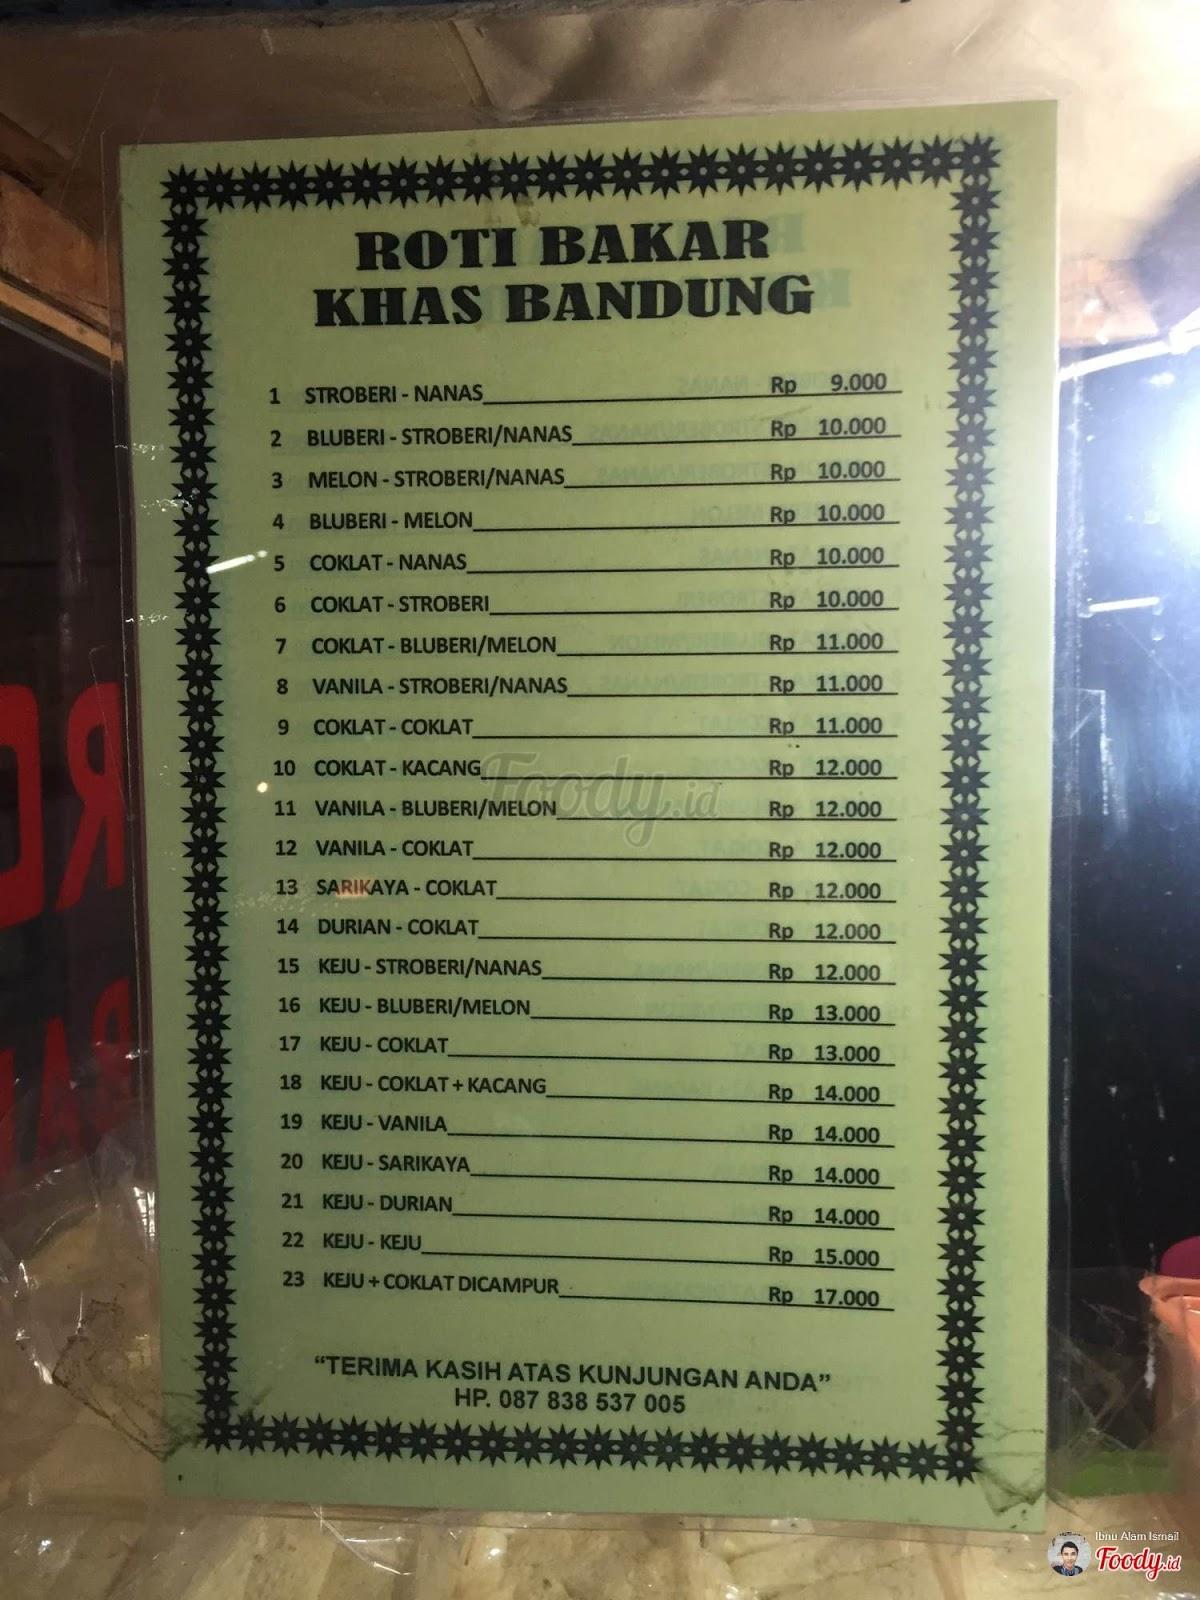 ROTI BAKAR
KHAS BANDUNG
1 STROBERI - NANAS Rp 9.000
2 BLUBERI - STROBERI/NANAS Rp 10.000
3 MELON - STROBERI/NANAS Rp 10.000
4 BLUBERI - MELON Rp 10.000
5 COKLAT - NANAS Rp 10.000
6 COKLAT - STROBERI Rp 10.000
7 COKLAT - BLUBERI/MELON Rp 11.000
8 VANILA - STROBERI/NANAS Rp 11.000
9 COKLAT - COKLAT Rp 11.000
10 COKLAT - KACANG Rp 12.000
11 VANILA - BLUBERI/MELON Rp 12.000
12 VANILA - COKLAT Rp 12.000
13 SARIKAYA - COKLAT Rp 12.000
14 DURIAN - COKLAT Rp 12.000
15 KEJU - STROBERI/NANAS Rp 12.000
16 KEJU - BLUBERI/MELON Rp 13.000
17 KEJU - COKLAT Rp 13.000
18 KEJU - COKLAT + KACANG Rp 14.000
19 KEJU - VANILA Rp 14.000
20 KEJU - SARIKAYA Rp 14.000
21 KEJU - DURIAN Rp 14.000
22 KEJU - KEJU Rp 15.000
23 KEJU + COKLAT DICAMPUR Rp 17.000
"TERIMA KASIH ATAS KUNJUNGAN ANDA"
HP. 087 838 537 005
Foody.id
Ibnu Alam Ismail
Foody.id